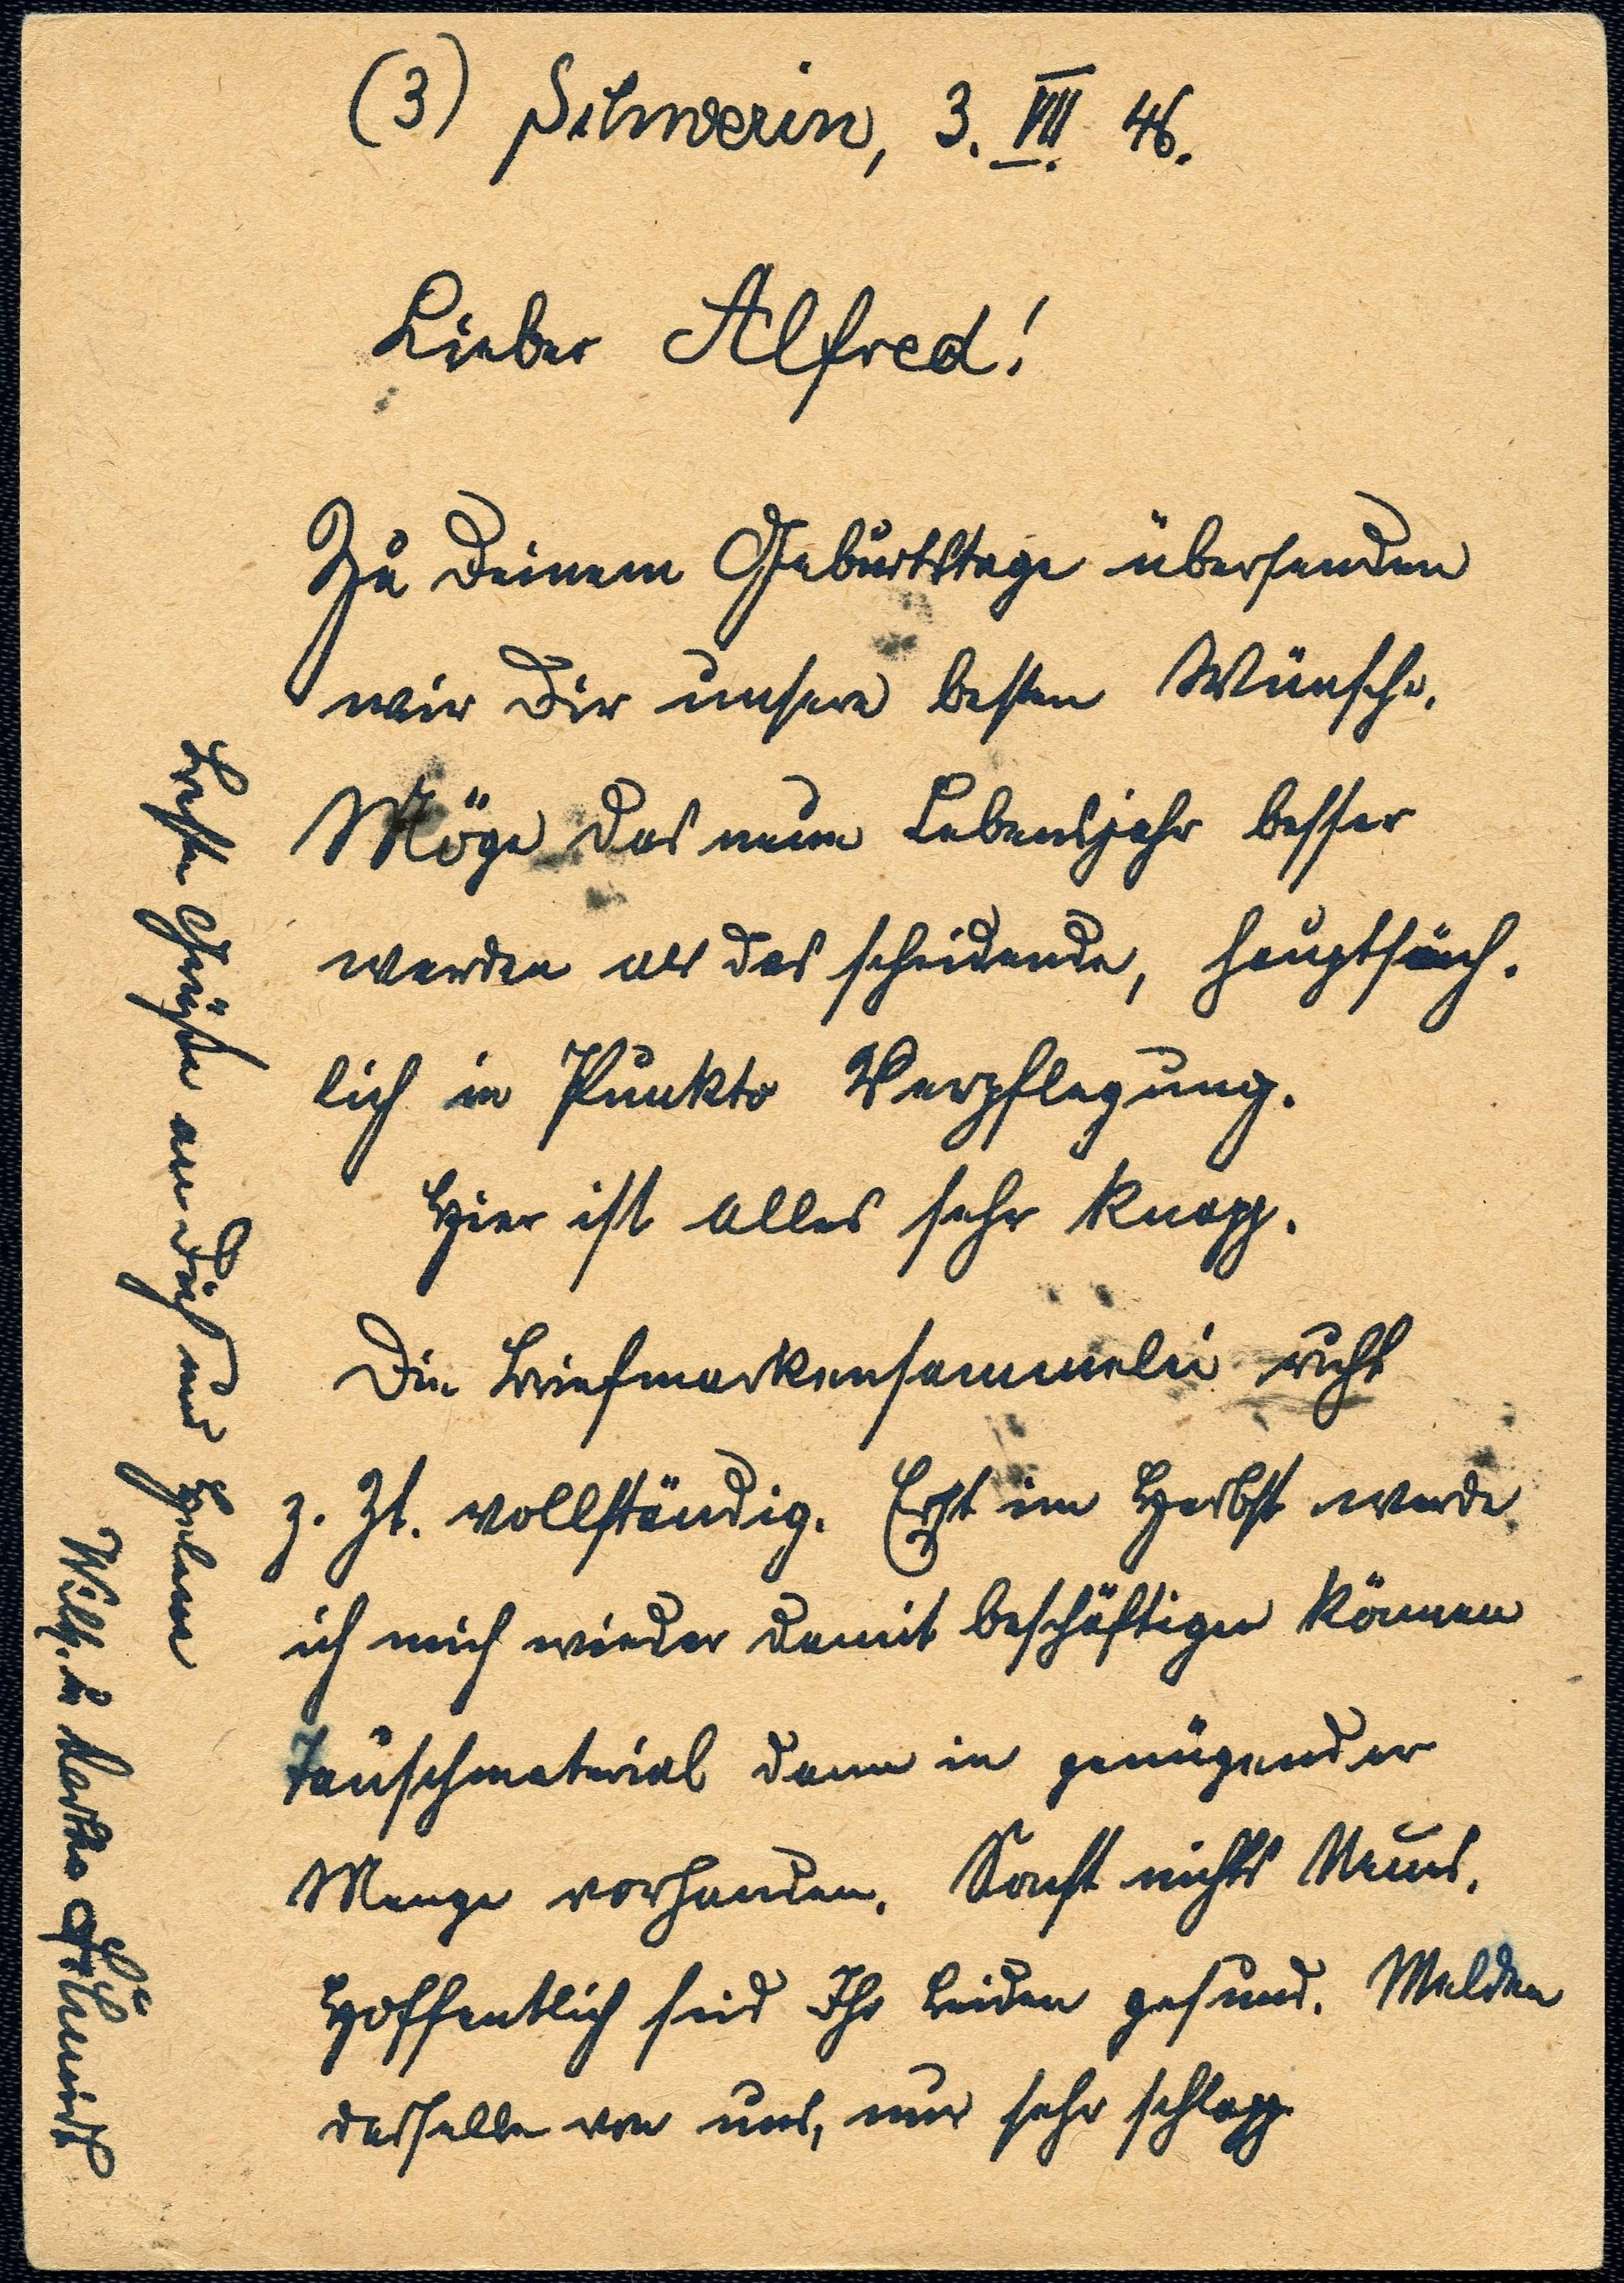 (3) Schwerin, 3. VII. 46.
Lieber Alfred!
Zu Deinem Geburtstage übersenden
wir Dir unsere besten Wünsche.
Möge das neue Lebensjahr besser
werden als das scheidende, hauptsäch-
lich in Punkto Verpflegung.
Hier ist alles sehr knapp.
Die Briefmarkensammelei ruht
z. Zt. vollständig. Erst im Herbst werde
ich mich wieder damit beschäftigen können
Tauschmaterial dann in genügender
Menge vorhanden. Sonst nichts Neues.
Hoffentlich seid Ihr beiden gesund. Melden
dasselbe von uns, nur sehr schlapp
Beste Grüße an Dich und Helene
Wilh. u. Martha